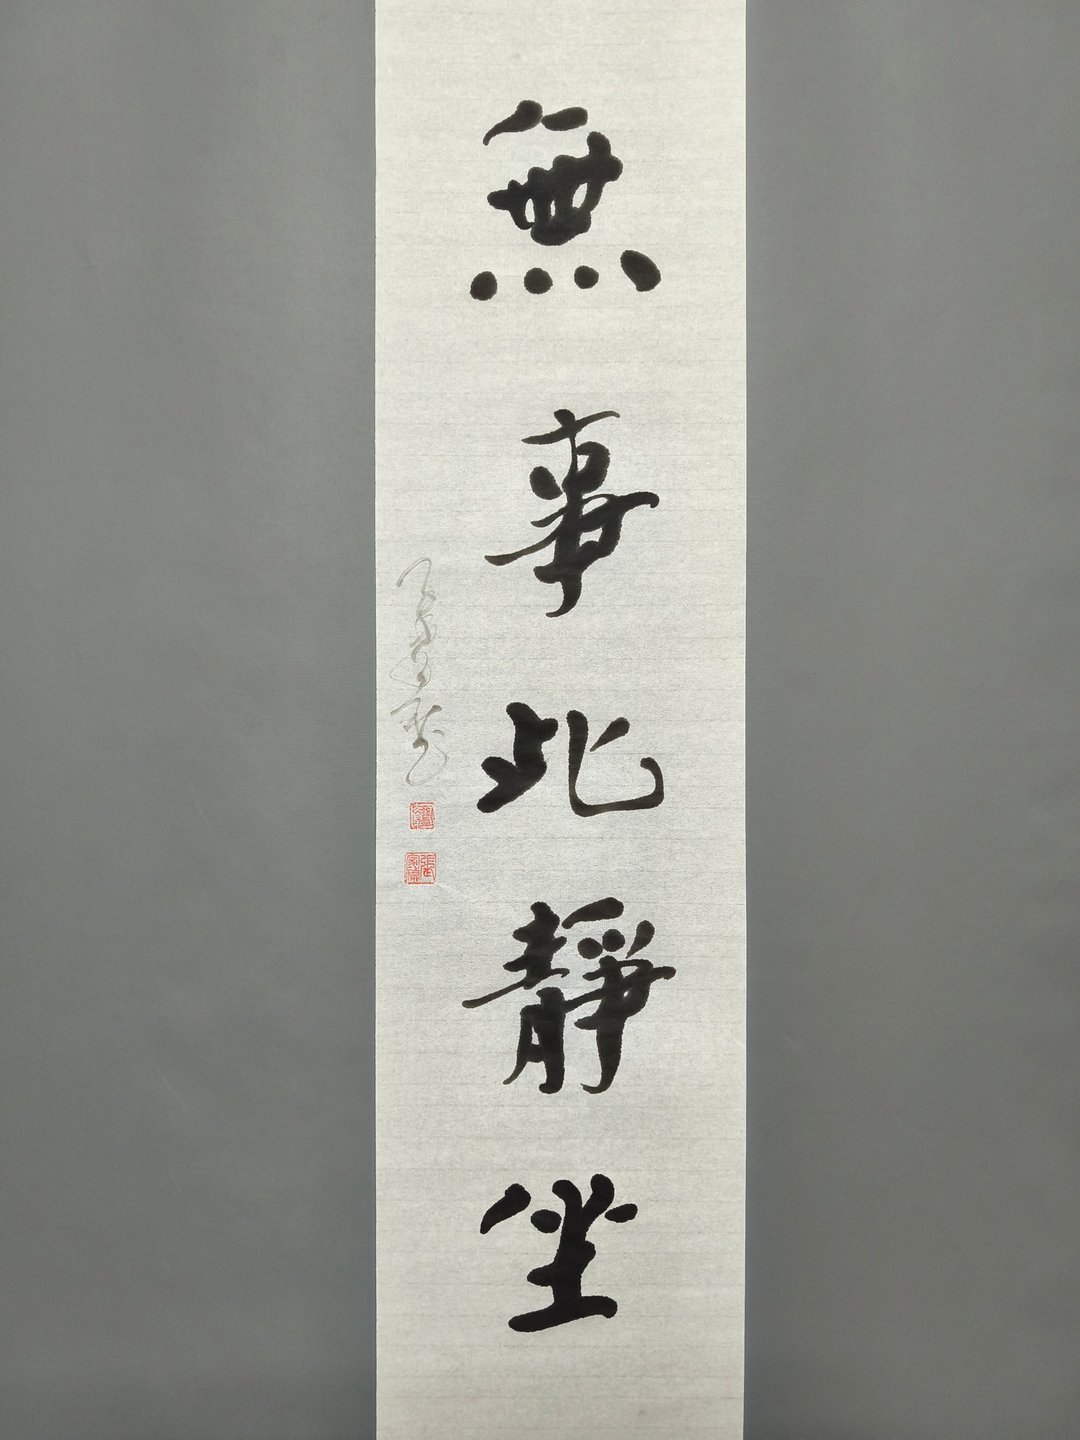 無事此靜坐